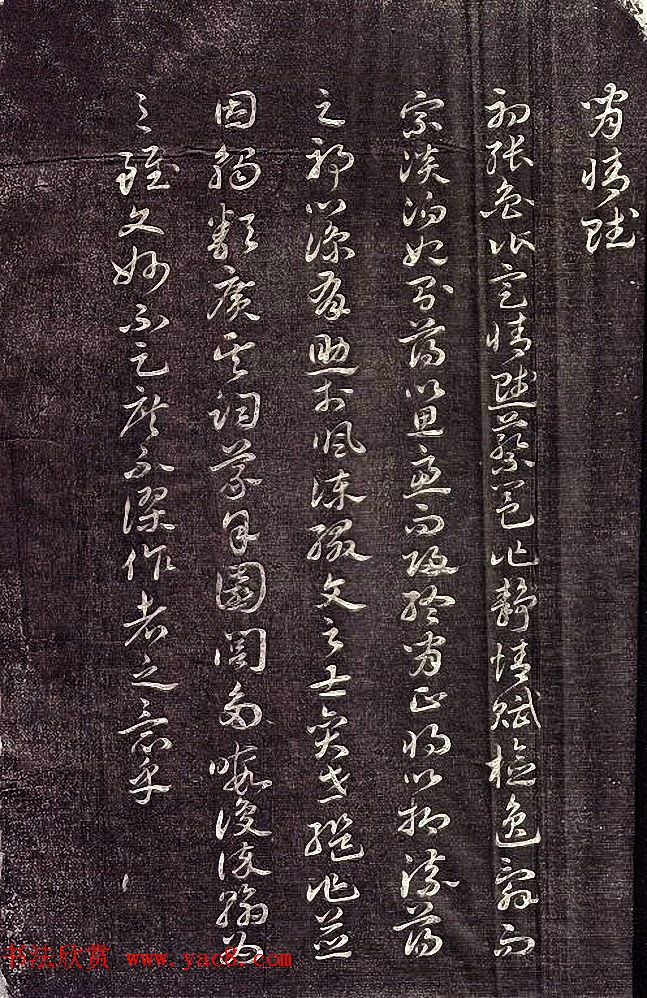 閒情賦
初張衡作定情賦蔡邕作靜情賦檢逸辭而
宗淡泊始則蕩以思慮而歸終閒正將以抑流蕩
之邪心諒有助於諷諫綴文之士奕世繼作並
因觸類廣其詞義余園閭多暇復染翰為
之雖文妙不足庶不謬作者之意乎
书法欣赏 www.yac8.com